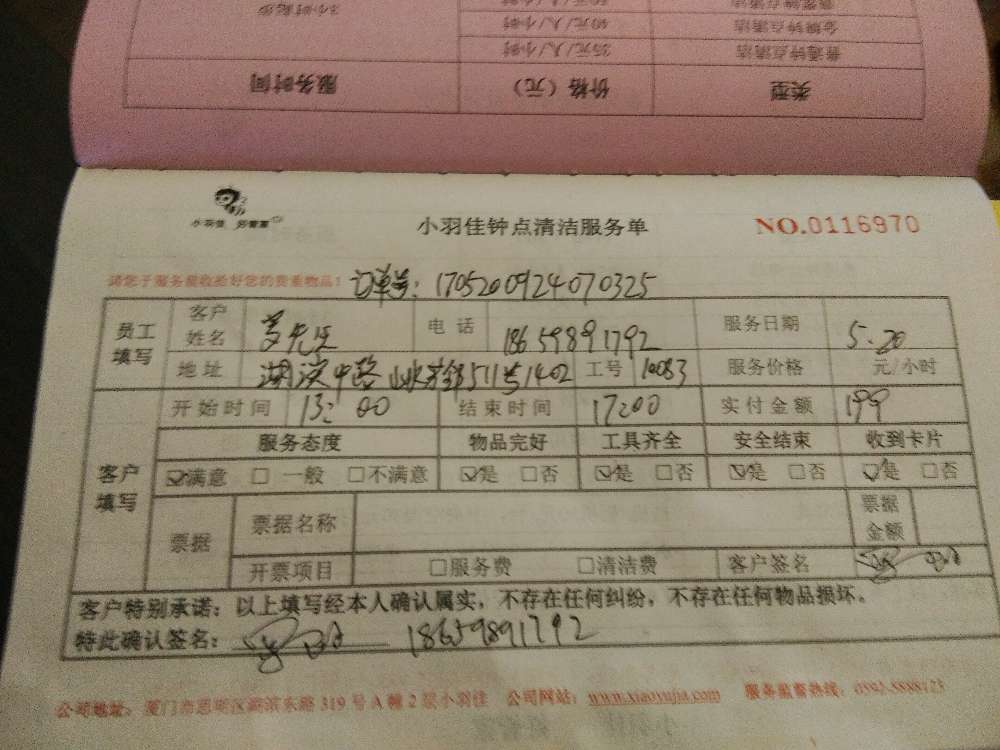 3小时起步
40元/人/小时 金牌钟点清洁
35元/人/小时 普通钟点清洁
服务时间 价格（元） 类型
小羽佳 好管家
小羽佳钟点清洁服务单
NO.0116970
请您于服务前收捡好您的贵重物品！ 订单号：170520092407032​5
员工填写 客户姓名 先生 电话 18659891792 服务日期 5.20
地址 湖滨中路 511号1402 工号 10083 服务价格 元/小时
开始时间 13:00 结束时间 17:00 实付金额 199
服务态度 物品完好 工具齐全 安全结束 收到卡片
客户填写 ☑满意 □一般 □不满意 ☑是 □否 ☑是 □否 ☑是 □否 ☑是 □否
票据 票据名称 票据金额
开票项目 □服务费 □清洁费 客户签名
客户特别承诺：以上填写经本人确认属实，不存在任何纠纷，不存在任何物品损坏。
特此确认签名： 18659891792
公司地址：厦门市思明区湖滨东路319号A幢2层小羽佳 公司网站：www.xiaoyujia.com 服务监督热线：